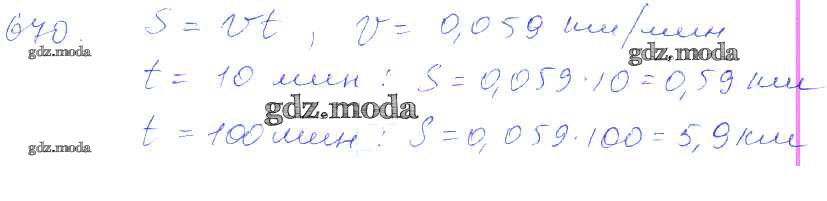 670. S = vt, v = 0,059 км/мин
gdz.moda gdz.moda
t = 10 мин : S = 0,059·10 = 0,59 км
gdz.moda
t = 100 мин : S = 0,059·100 = 5,9 км
gdz.moda